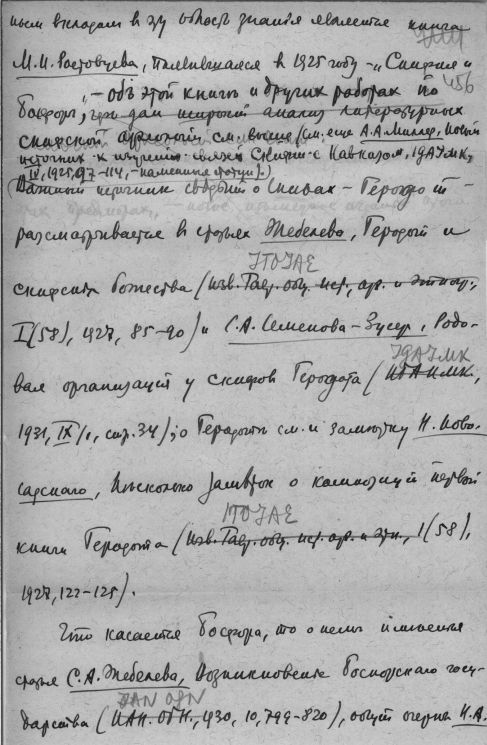 ным вкладом в эту область знания является книга
М.И. Ростовцева, появившаяся в 1925 году – „Скифия и
456
Боспор", – об этой книге и других работах по
где дан широкий анализ литературных
скифской археологии см. выше (см. еще А.А. Миллер, Новый
источник к изучению связей Скифии с Кавказом, ІДАЈМК,
IV, 1925, 97–114, – каменные статуи).)
(Важный источник сведений о скифах – Геродот –
рассматривается в статьях Жебелева, Геродот и
ІТОЈАЕ
скифские божества (Изв. Тавр. общ. ист., арх. и этногр.,
I (58), 1927, 85–90) и С.А. Семенова-Зусер, Родо-
ІДАЈМК
вая организация у скифов Геродота (ИГАИМК,
1931, IX/1, стр. 34); о Геродоте см. и заметку Н. Ново-
садского, Несколько заметок о композиции первой
ІТОЈАЕ
книги Геродота (Изв. Тавр. общ. ист. арх. и этн., 1(58),
1927, 122–125).
Что касается Боспора, то о нем имеется
статья С.А. Жебелева, Возникновение Боспорского госу-
JAN OGN
дарства (ИАН. ОГН, 1930, 10, 799–820), общий очерк Н.А.